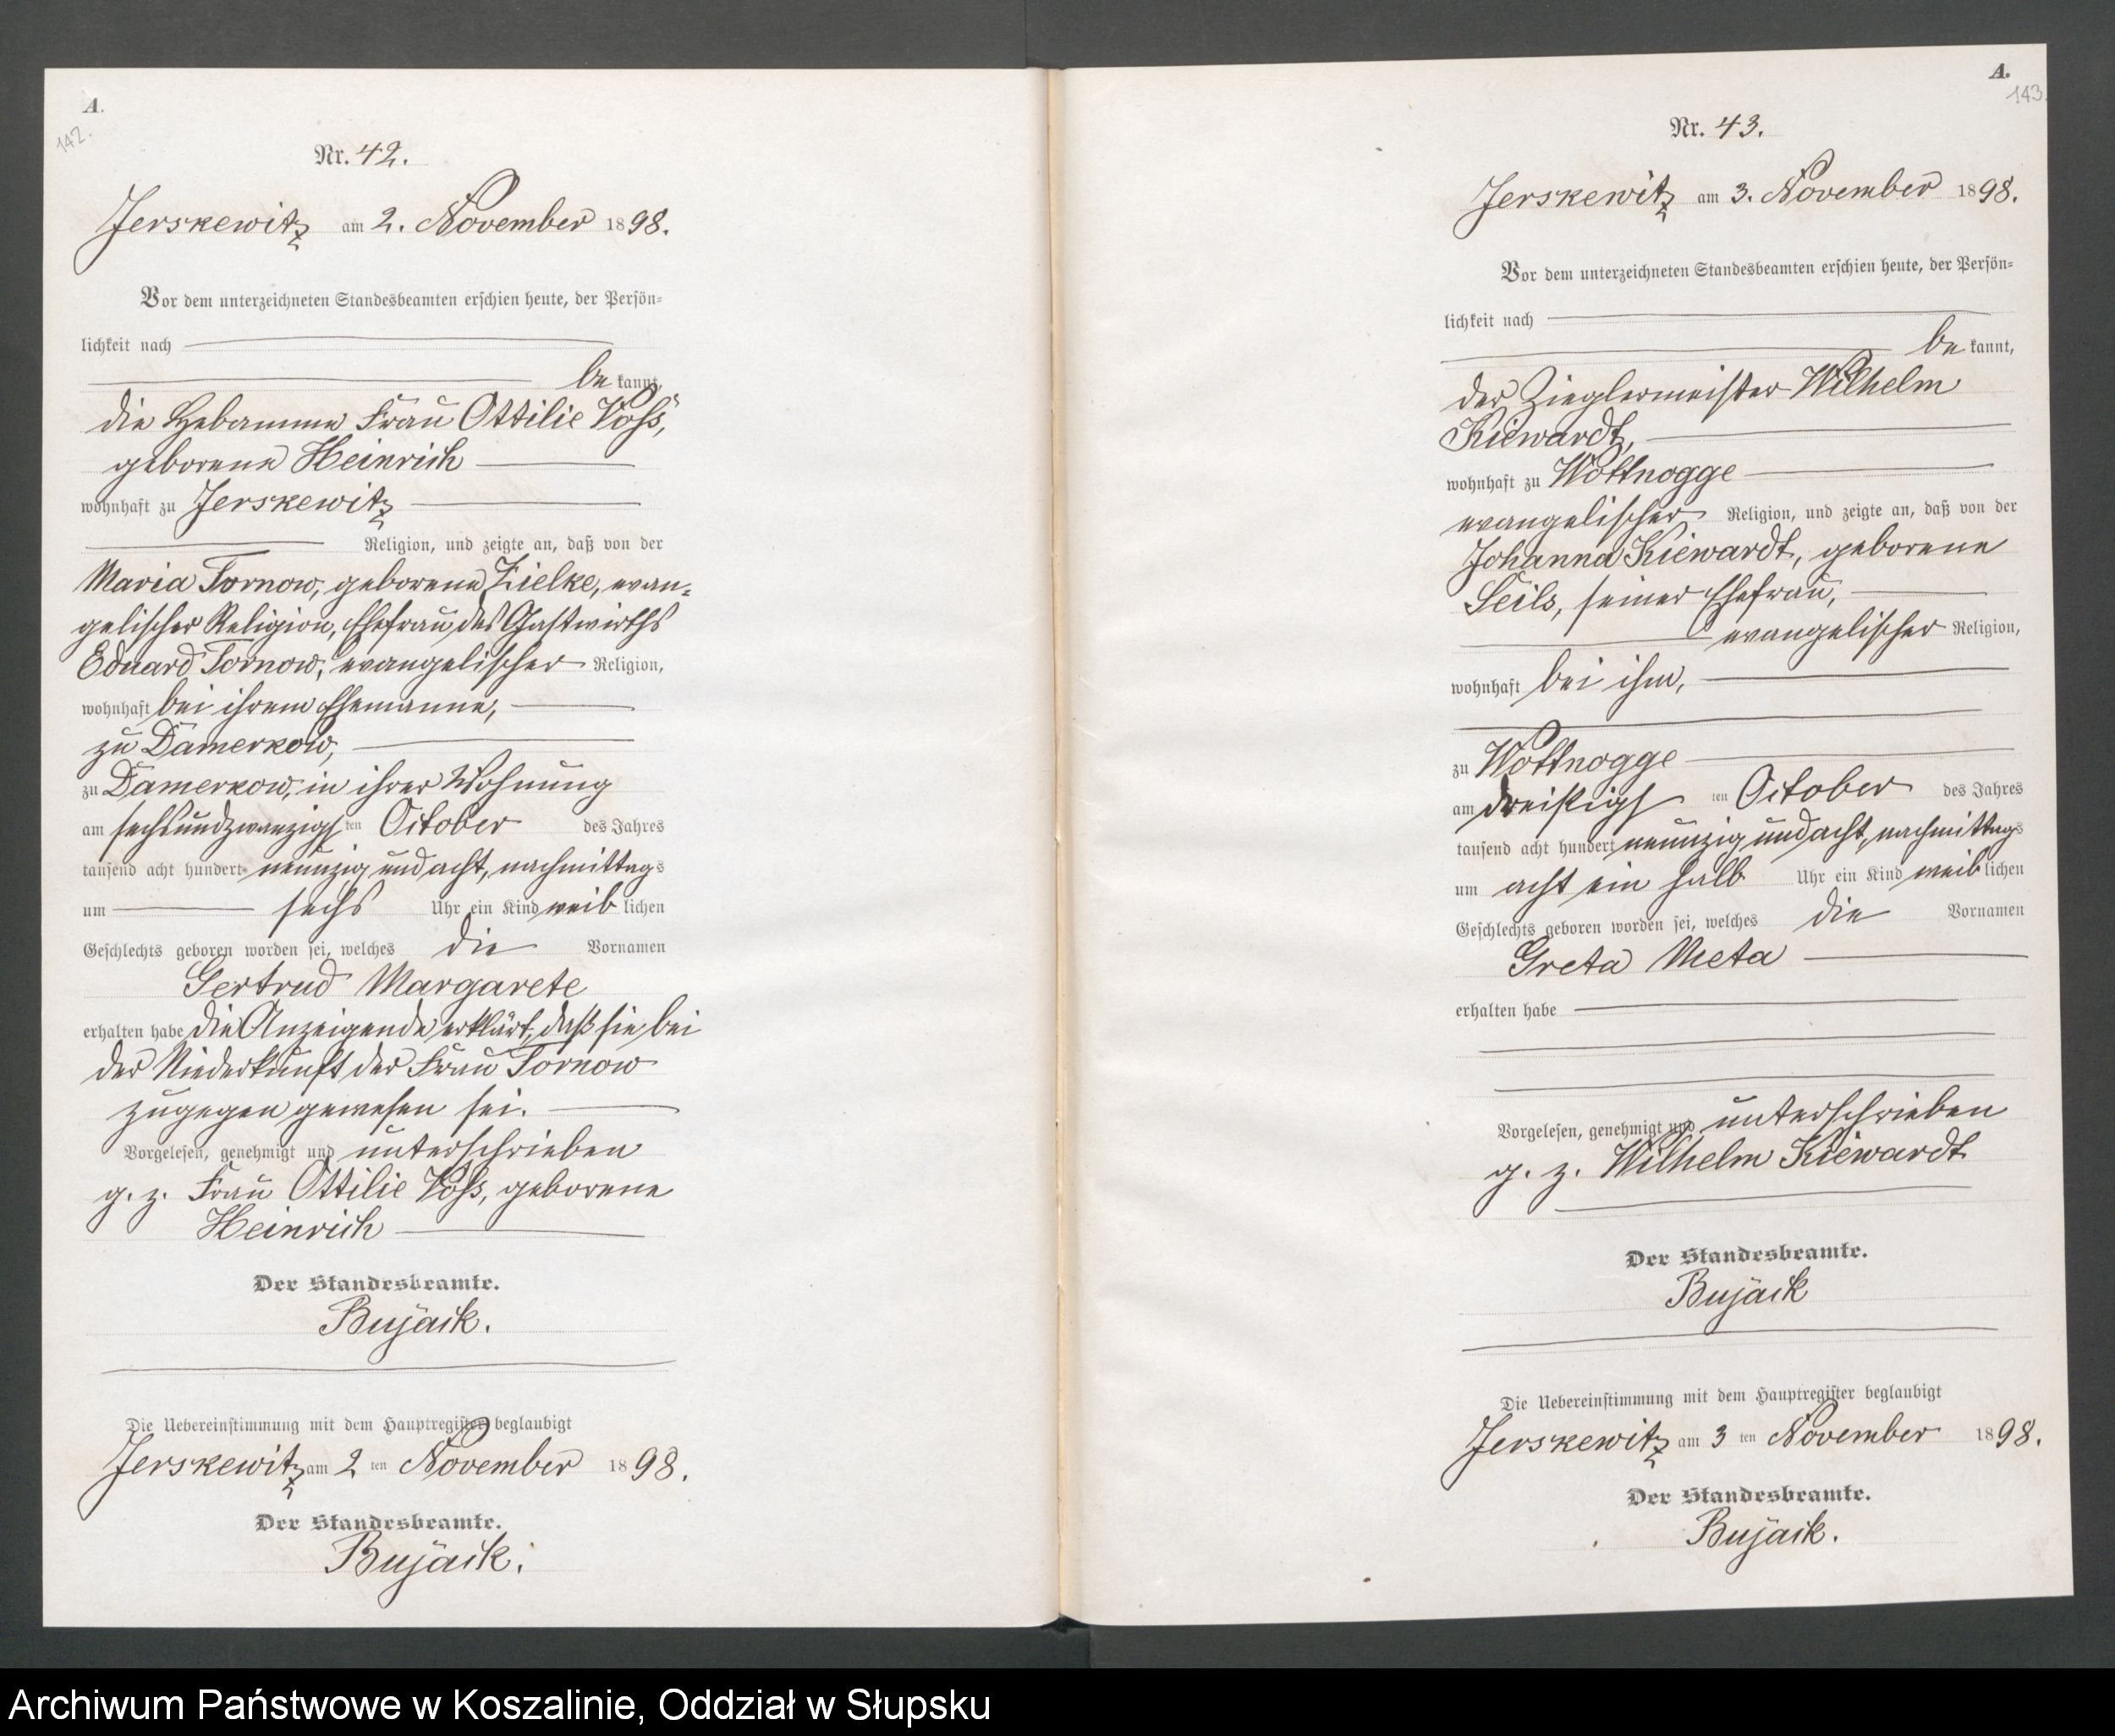 A.
142.
Nr. 42.
Jerskewitz am 2. November 1898.
Vor dem unterzeichneten Standesbeamten erschien heute, der Persön-
lichkeit nach
be kannt,
die Hebamme Frau Ottilie Voß,
geborene Heinrich
wohnhaft zu Jerskewitz
Religion, und zeigte an, daß von der
Maria Tornow, geborene Zielke, evan-
gelischer Religion, Ehefrau des Gastwirths
Eduard Tornow, evangelischer Religion,
wohnhaft bei ihrem Ehemanne,
zu Damerkow,
zu Damerkow, in ihrer Wohnung
am sechsundzwanzigsten October des Jahres
tausend acht hundert neunzig und acht, nachmittags
um sechs Uhr ein Kind weiblichen
Geschlechts geboren worden sei, welches die Vornamen
Gertrud Margarete
erhalten habe die Anzeigende erklärt, daß sie bei
der Niederkunft der Frau Tornow
zugegen gewesen sei.
Vorgelesen, genehmigt und unterschrieben
g. z. Frau Ottilie Voß, geborene
Heinrich
Der Standesbeamte.
Bujack.
Die Uebereinstimmung mit dem Hauptregister beglaubigt
Jerskewitz am 2 ten November 1898.
Der Standesbeamte.
Bujack.
A.
143.
Nr. 43.
Jerskewitz am 3. November 1898.
Vor dem unterzeichneten Standesbeamten erschien heute, der Persön-
lichkeit nach
be kannt,
der Zieglermeister Wilhelm
Kiewardt,
wohnhaft zu Wottnogge
evangelischer Religion, und zeigte an, daß von der
Johanna Kiewardt, geborene
Seils, seiner Ehefrau,
evangelischer Religion,
wohnhaft bei ihm,
zu Wottnogge
am dreißigsten October des Jahres
tausend acht hundert neunzig und acht, nachmittags
um acht ein halb Uhr ein Kind weiblichen
Geschlechts geboren worden sei, welches die Vornamen
Greta Meta
erhalten habe
Vorgelesen, genehmigt und unterschrieben
g. z. Wilhelm Kiewardt
Der Standesbeamte.
Bujack
Die Uebereinstimmung mit dem Hauptregister beglaubigt
Jerskewitz am 3 ten November 1898.
Der Standesbeamte.
Bujack.
Archiwum Państwowe w Koszalinie, Oddział w Słupsku